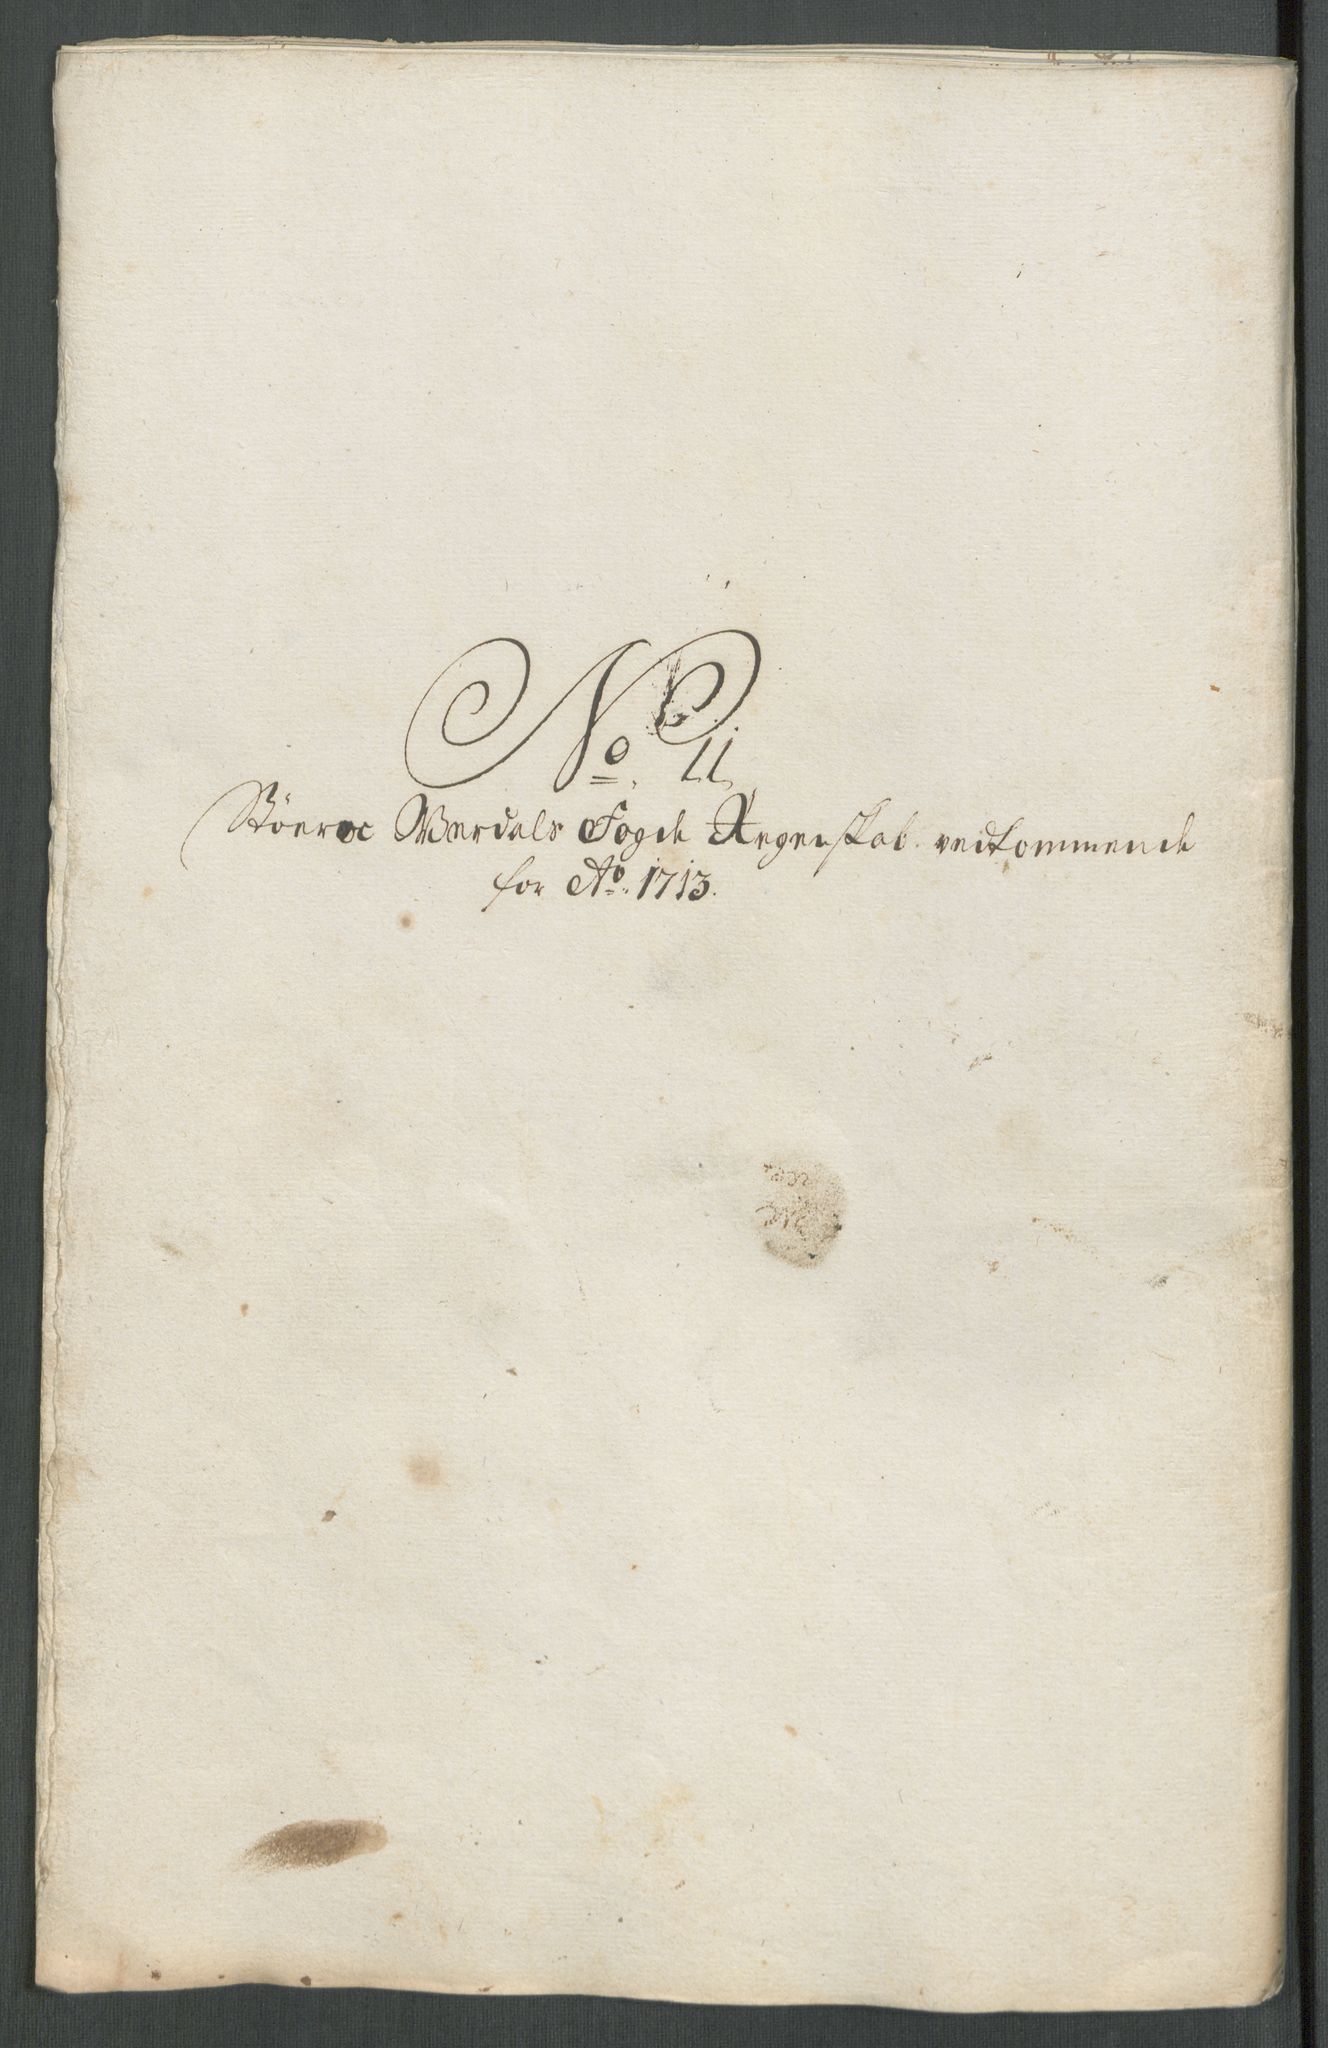 No. 11
Stöer oc Werdals Fogde Regenskab vedkommende
for Ao. 1713.